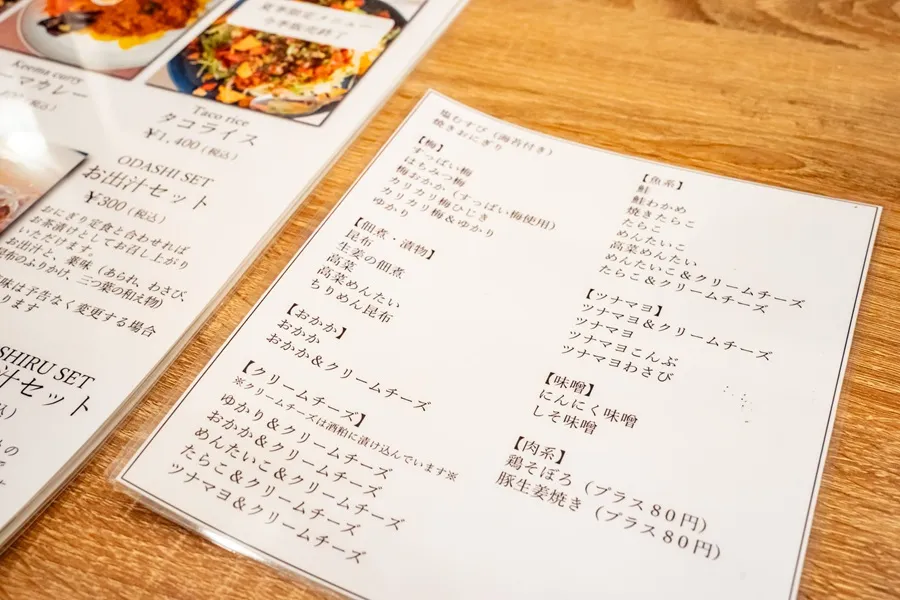 夏季限定メニュー
今季販売終了
Keema curry
マカレー
(税込)
Taco rice
タコライス
¥1,400(税込)
ODASHI SET
お出汁セット
¥300(税込)
おにぎり定食と合わせれば
お茶漬けとしてお召し上がり
いただけます。
お出汁と、薬味(あられ、わさび、
昆布のふりかけ、三つ葉の和え物)
味は予告なく変更する場合
ります
SHIRU SET
汁セット
塩むすび(海苔付き)
焼きおにぎり
【梅】
すっぱい梅
はちみつ梅
梅おかか(すっぱい梅使用)
カリカリ梅ひじき
カリカリ梅&ゆかり
ゆかり
【佃煮・漬物】
昆布
生姜の佃煮
高菜
高菜めんたい
ちりめん昆布
【おかか】
おかか
おかか&クリームチーズ
【クリームチーズ】
※クリームチーズは酒粕に漬け込んでいます※
ゆかり&クリームチーズ
おかか&クリームチーズ
めんたいこ&クリームチーズ
たらこ&クリームチーズ
ツナマヨ&クリームチーズ
【魚系】
鮭
鮭わかめ
焼きたらこ
たらこ
めんたいこ
高菜めんたい
めんたいこ&クリームチーズ
たらこ&クリームチーズ
【ツナマヨ】
ツナマヨ&クリームチーズ
ツナマヨ
ツナマヨこんぶ
ツナマヨわさび
【味噌】
にんにく味噌
しそ味噌
【肉系】
鶏そぼろ(プラス80円)
豚生姜焼き(プラス80円)